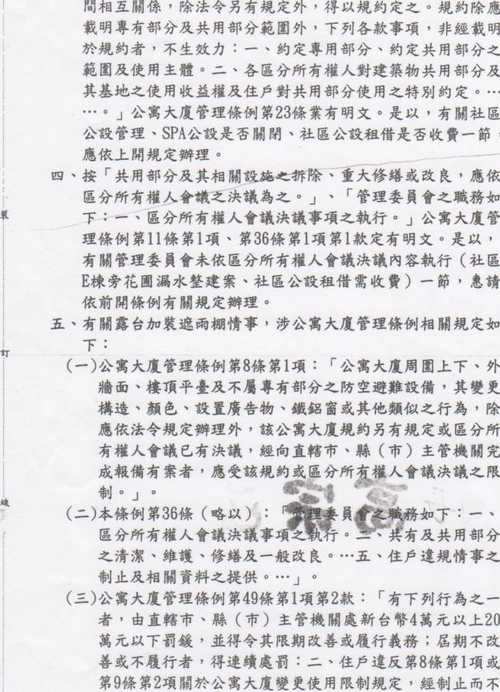 間相互關係，除法令另有規定外，得以規約定之。規約除應
載明專有部分及共用部分範圍外，下列各款事項，非經載明
於規約者，不生效力：一、約定專用部分、約定共用部分之
範圍及使用主體。二、各區分所有權人對建築物共用部分及
其基地之使用收益權及住戶對共用部分使用之特別約定。…
…。」公寓大廈管理條例第23條業有明文。是以，有關社區
公設管理、SPA公設是否關閉、社區公設租借是否收費一節，
應依上開規定辦理。
四、按「共用部分及其相關設施之拆除、重大修繕或改良，應依
區分所有權人會議之決議為之。」、「管理委員會之職務如
下：一、區分所有權人會議決議事項之執行。」公寓大廈管
理條例第11條第1項、第36條第1項第1款定有明文。是以，
有關管理委員會未依區分所有權人會議決議內容執行（社區
E棟旁花圃漏水整建案、社區公設租借需收費）一節，惠請
依前開條例有關規定辦理。
五、有關露台加裝遮雨棚情事，涉公寓大廈管理條例相關規定如
下：
(一)公寓大廈管理條例第8條第1項：「公寓大廈周圍上下、外
牆面、樓頂平臺及不屬專有部分之防空避難設備，其變更
構造、顏色、設置廣告物、鐵鋁窗或其他類似之行為，除
應依法令規定辦理外，該公寓大廈規約另有規定或區分所
有權人會議已有決議，經向直轄市、縣（市）主管機關完
成報備有案者，應受該規約或區分所有權人會議決議之限
制。」。
(二)本條例第36條（略以）：「管理委員會之職務如下：一、
區分所有權人會議決議事項之執行。二、共有及共用部分
之清潔、維護、修繕及一般改良。…五、住戶違規情事之
制止及相關資料之提供。…」。
(三)公寓大廈管理條例第49條第1項第2款：「有下列行為之一
者，由直轄市、縣（市）主管機關處新台幣4萬元以上20
萬元以下罰鍰，並得令其限期改善或履行義務；屆期不改
善或不履行者，得連續處罰：二、住戶違反第8條第1項或
第9條第2項關於公寓大廈變更使用限制規定，經制止而不
訂
線